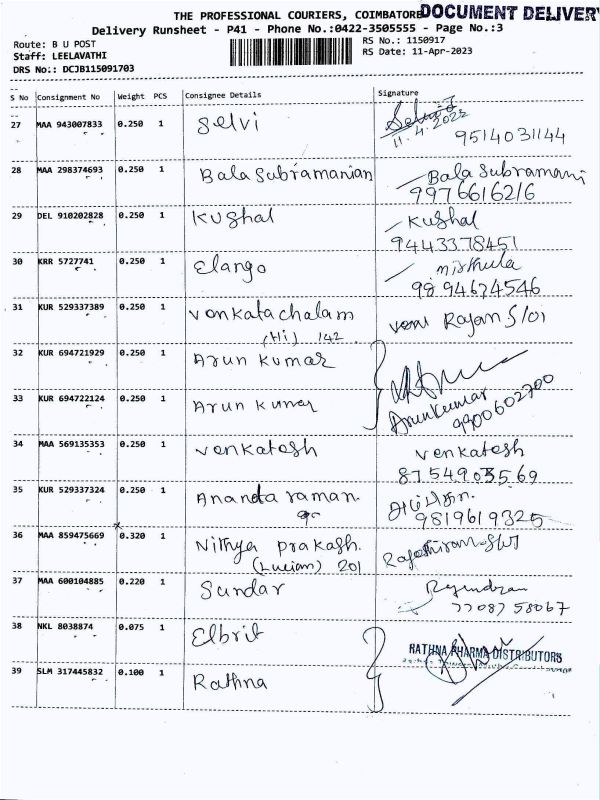 THE PROFESSIONAL COURIERS, COIMBATORE DOCUMENT DELIVERY
Delivery Runsheet - P41 - Phone No.:0422-3505555 - Page No.:3
Route: B U POST RS No.: 1150917
Staff: LEELAVATHI RS Date: 11-Apr-2023
DRS No:: DCJB115091703
S No Consignment No Weight PCS Consignee Details Signature
27 MAA 943007833 0.250 1 Selvi 11.4.2023 9514031144
28 MAA 298374693 0.250 1 BalaSubramanian Bala Subramani
9976616216
29 DEL 910202828 0.250 1 Kushal Kushal
9443378451
30 KRR 5727741 0.250 1 Elango
9894674546
31 KUR 529337389 0.250 1 Venkatachalam Rajan S/o
142
32 KUR 694721929 0.250 1 Arun Kumar
33 KUR 694722124 0.250 1 Arun Kumar Arunkumar
9900602700
34 MAA 569135353 1 Venkatesh Venkatesh
8754903569
35 KUR 529337324 0.250 1 Anandaraman
9819619325
36 MAA 859475669 0.320 1 Nithya prakash.
(Lucian) 201
37 MAA 600104885 0.220 1 Sundar Rajendran
7708758067
38 NKL 8038874 0.075 1 Elbrit RATHNA PHARMA DISTRIBUTORS
39 SLM 317445832 0.100 1 Rathna